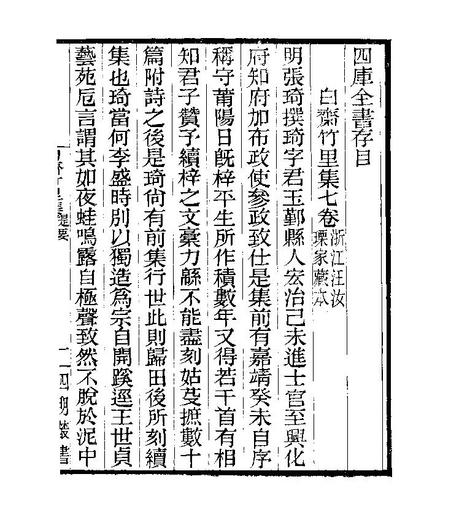 四庫全書存目
白齋竹里集七卷浙江汪汝瑮家藏本
明張琦撰琦字君玉鄞縣人宏治己未進士官至興化
府知府加布政使參政致仕是集前有嘉靖癸未自序
稱守莆陽日旣梓平生所作積數年又得若干首有相
知君子贊予續梓之文藁力緜不能盡刻姑芟摭數十
篇附詩之後是琦尙有前集行世此則歸田後所刻續
集也琦當何李盛時別以獨造為宗自開蹊逕王世貞
藝苑卮言謂其如夜蛙鳴露自極聲致然不脫於泥中
提要
一 四明叢書